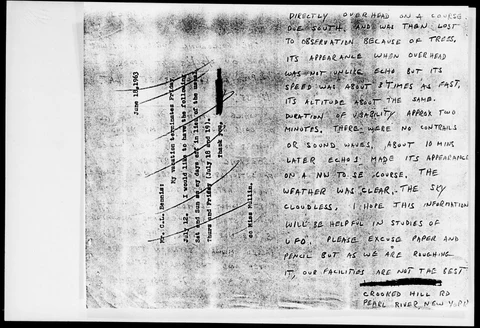 DIRECTLY OVERHEAD ON A COURSE
DUE SOUTH. AND WAS THEN LOST
TO OBSERVATION BECAUSE OF TREES.
ITS APPEARANCE WHEN OVERHEAD
WAS NOT UNLIKE ECHO BUT ITS
SPEED WAS ABOUT 3 TIMES AS FAST,
ITS ALTITUDE ABOUT THE SAME.
DURATION OF VISABILITY APPROX TWO
MINUTES. THERE WERE NO CONTRAILS
OR SOUND WAVES. ABOUT 10 MINS
LATER ECHO I MADE ITS APPEARANCE
ON A NW TO SE COURSE. THE
WEATHER WAS CLEAR, THE SKY
CLOUDLESS. I HOPE THIS INFORMATION
WILL BE HELPFUL IN STUDIES OF
UFO. PLEASE EXCUSE PAPER AND
PENCIL BUT AS WE ARE ROUGHING
IT, OUR FACILITIES ARE NOT THE BEST
CROOKED HILL RD
PEARL RIVER, NEW YORK
June 18, 1963
Mr. C.L. Dennis:
My vacation terminates Friday
July 12. I would like to have the following
Sat and Sun as my days off in lieu of the usual
Thurs and Friday (July 18 and 19).
Thank you,
cc Miss Pollin